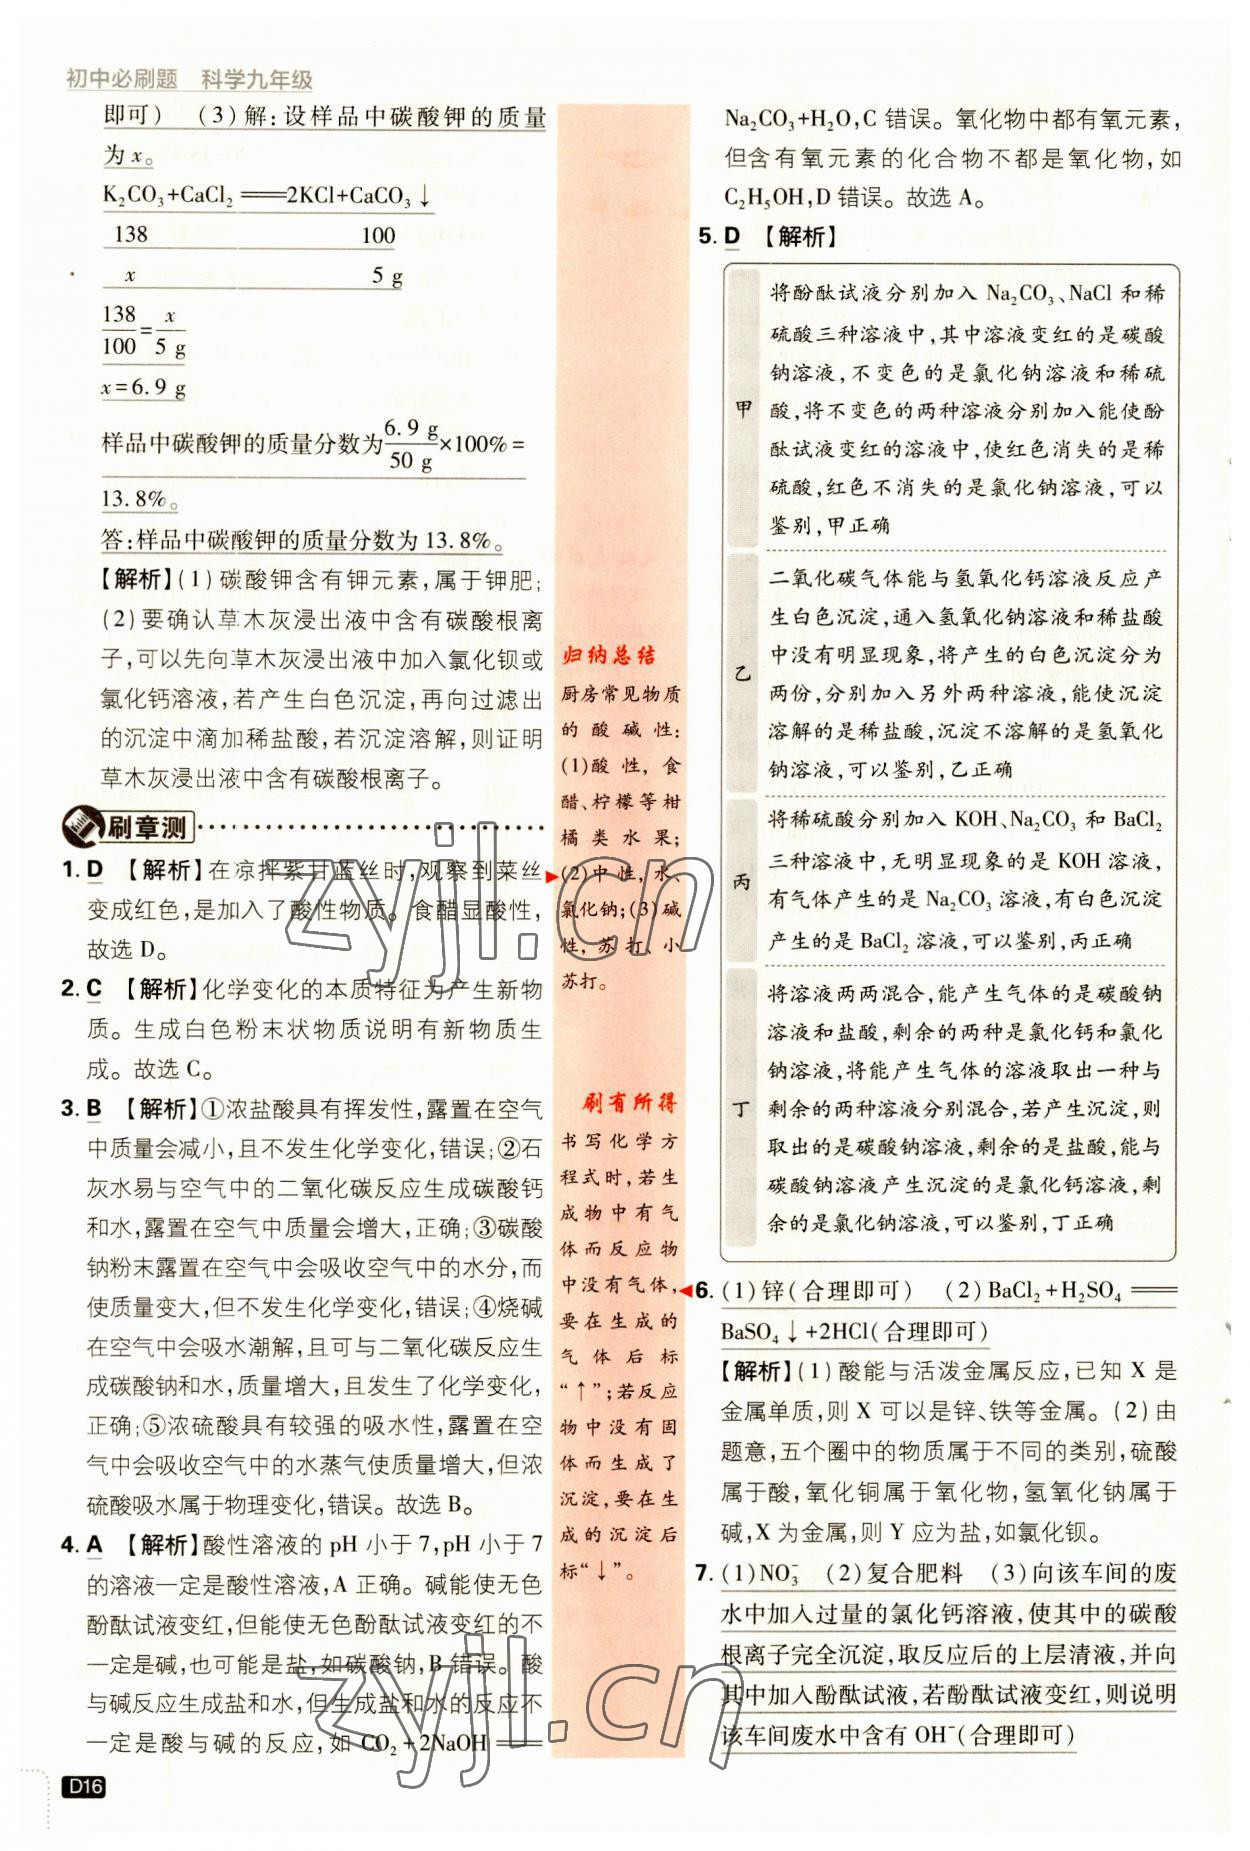 初中必刷题 科学九年级
即可) (3)解:设样品中碳酸钾的质量
为 x。
K₂CO₃+CaCl₂══2KCl+CaCO₃↓
138 100
x 5 g
138/100=x/5 g
x=6.9 g
样品中碳酸钾的质量分数为6.9 g/50 g×100%=
13.8%。
答:样品中碳酸钾的质量分数为13.8%。
【解析】(1)碳酸钾含有钾元素,属于钾肥;
(2)要确认草木灰浸出液中含有碳酸根离
子,可以先向草木灰浸出液中加入氯化钡或
氯化钙溶液,若产生白色沉淀,再向过滤出
的沉淀中滴加稀盐酸,若沉淀溶解,则证明
草木灰浸出液中含有碳酸根离子。
刷章测
1. D 【解析】在凉拌紫甘蓝丝时,观察到菜丝
变成红色,是加入了酸性物质。食醋显酸性,
故选 D。
2. C 【解析】化学变化的本质特征为产生新物
质。生成白色粉末状物质说明有新物质生
成。故选 C。
3. B 【解析】①浓盐酸具有挥发性,露置在空气
中质量会减小,且不发生化学变化,错误;②石
灰水易与空气中的二氧化碳反应生成碳酸钙
和水,露置在空气中质量会增大,正确;③碳酸
钠粉末露置在空气中会吸收空气中的水分,而
使质量变大,但不发生化学变化,错误;④烧碱
在空气中会吸水潮解,且可与二氧化碳反应生
成碳酸钠和水,质量增大,且发生了化学变化,
正确;⑤浓硫酸具有较强的吸水性,露置在空
气中会吸收空气中的水蒸气使质量增大,但浓
硫酸吸水属于物理变化,错误。故选 B。
4. A 【解析】酸性溶液的 pH 小于 7,pH 小于 7
的溶液一定是酸性溶液,A 正确。碱能使无色
酚酞试液变红,但能使无色酚酞试液变红的不
一定是碱,也可能是盐,如碳酸钠,B 错误。酸
与碱反应生成盐和水,但生成盐和水的反应不
一定是酸与碱的反应,如 CO₂+2NaOH══
D16
归纳总结
厨房常见物质
的酸碱性:
(1)酸性,食
醋、柠檬等柑
橘类水果;
(2)中性,水、
氯化钠;(3)碱
性,苏打、小
苏打。
刷有所得
书写化学方
程式时,若生
成物中有气
体而反应物
中没有气体,
要在生成的
气体后标
“↑”;若反应
物中没有固
体而生成了
沉淀,要在生
成的沉淀后
标“↓”。
Na₂CO₃+H₂O,C 错误。氧化物中都有氧元素,
但含有氧元素的化合物不都是氧化物,如
C₂H₅OH,D 错误。故选 A。
5. D 【解析】
甲
将酚酞试液分别加入 Na₂CO₃、NaCl 和稀
硫酸三种溶液中,其中溶液变红的是碳酸
钠溶液,不变色的是氯化钠溶液和稀硫
酸,将不变色的两种溶液分别加入能使酚
酞试液变红的溶液中,使红色消失的是稀
硫酸,红色不消失的是氯化钠溶液,可以
鉴别,甲正确
乙
二氧化碳气体能与氢氧化钙溶液反应产
生白色沉淀,通入氢氧化钠溶液和稀盐酸
中没有明显现象,将产生的白色沉淀分为
两份,分别加入另外两种溶液,能使沉淀
溶解的是稀盐酸,沉淀不溶解的是氢氧化
钠溶液,可以鉴别,乙正确
丙
将稀硫酸分别加入 KOH、Na₂CO₃ 和 BaCl₂
三种溶液中,无明显现象的是 KOH 溶液,
有气体产生的是 Na₂CO₃ 溶液,有白色沉淀
产生的是 BaCl₂ 溶液,可以鉴别,丙正确
丁
将溶液两两混合,能产生气体的是碳酸钠
溶液和盐酸,剩余的两种是氯化钙和氯化
钠溶液,将能产生气体的溶液取出一种与
剩余的两种溶液分别混合,若产生沉淀,则
取出的是碳酸钠溶液,剩余的是盐酸,能与
碳酸钠溶液产生沉淀的是氯化钙溶液,剩
余的是氯化钠溶液,可以鉴别,丁正确
6. (1)锌(合理即可) (2)BaCl₂+H₂SO₄══
BaSO₄↓+2HCl(合理即可)
【解析】(1)酸能与活泼金属反应,已知 X 是
金属单质,则 X 可以是锌、铁等金属。(2)由
题意,五个圈中的物质属于不同的类别,硫酸
属于酸,氧化铜属于氧化物,氢氧化钠属于
碱,X 为金属,则 Y 应为盐,如氯化钡。
7. (1)NO₃⁻ (2)复合肥料 (3)向该车间的废
水中加入过量的氯化钙溶液,使其中的碳酸
根离子完全沉淀,取反应后的上层清液,并向
其中加入酚酞试液,若酚酞试液变红,则说明
该车间废水中含有 OH⁻(合理即可)
zyjl.cn
zyjl.cn